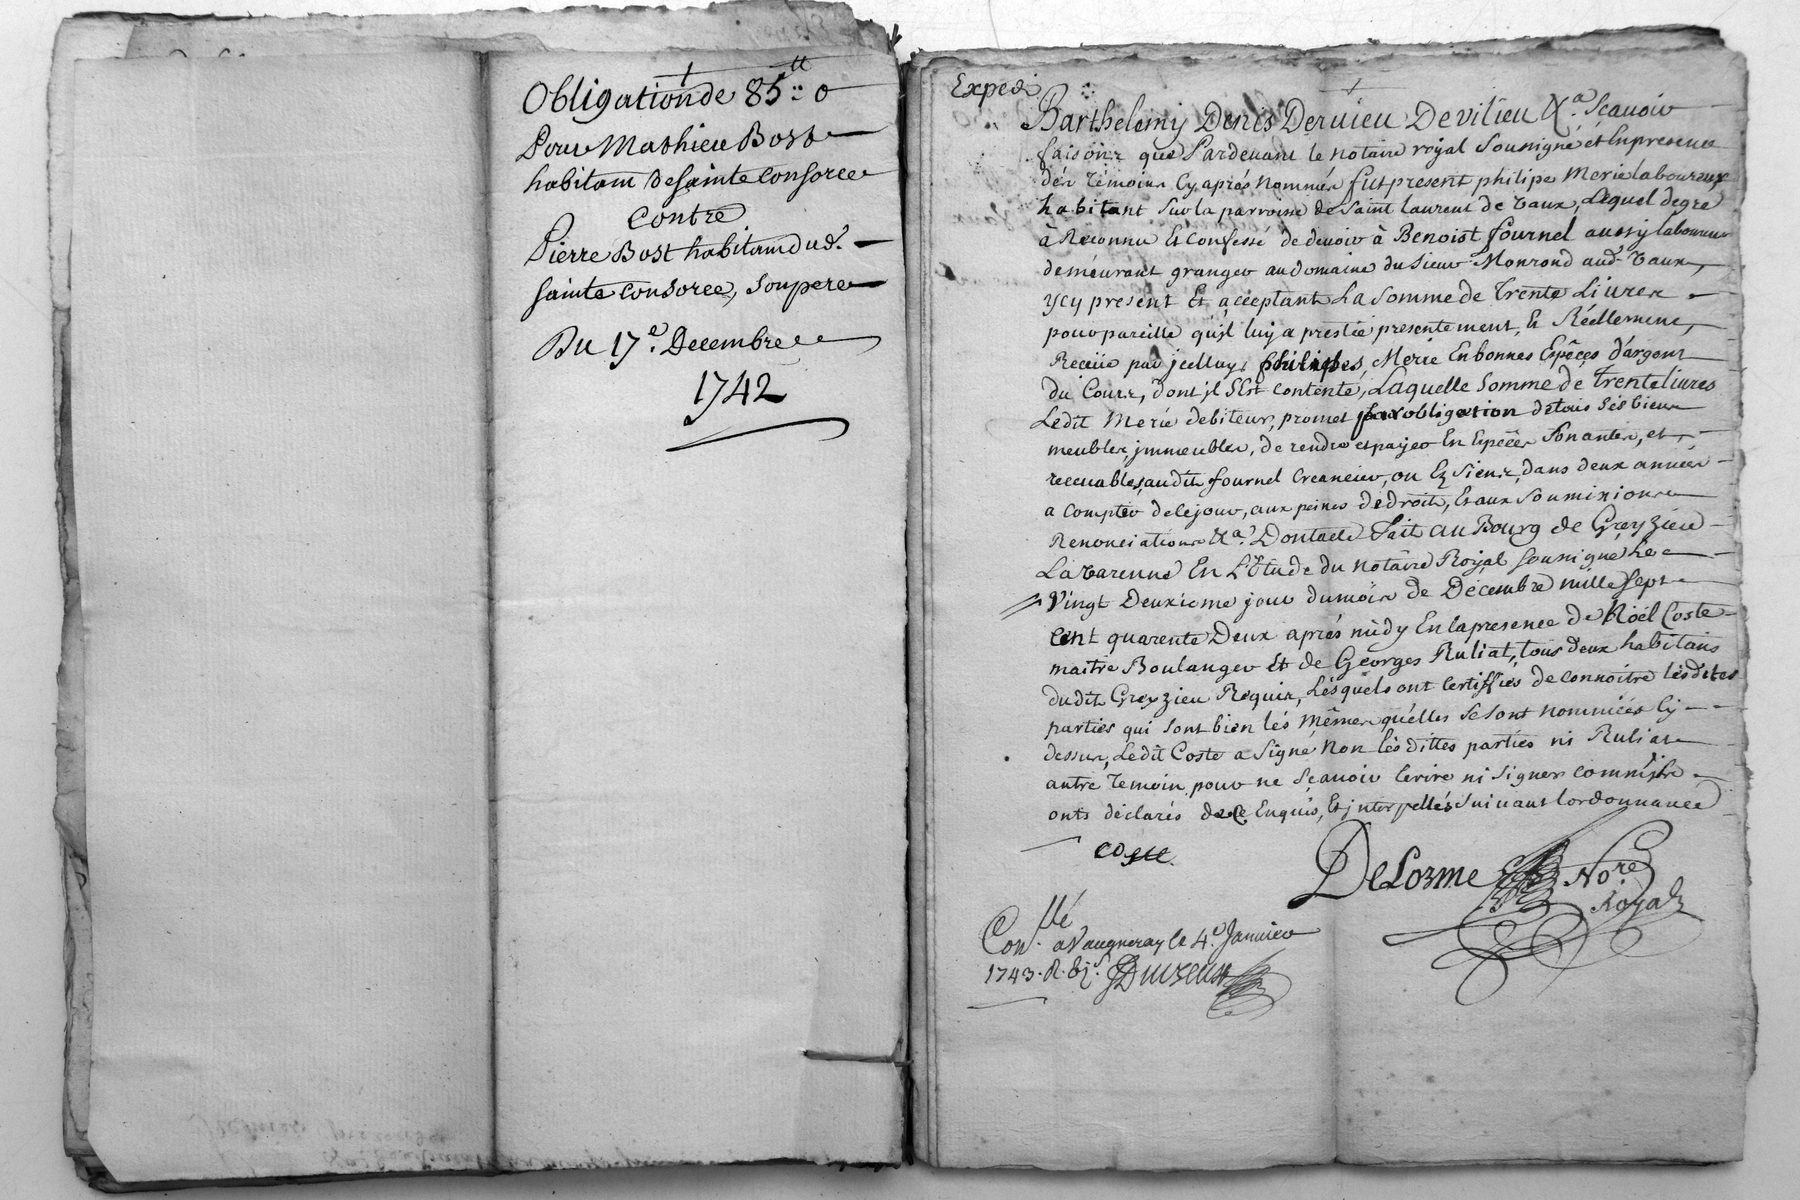 Obligation de 85tt :: 0
Pour Mathieu Bost
habitant de Sainte Consorce
Contre
Pierre Bost habitant dud.
Sainte Consorce, Son pere
Du 17e. Decembre
1742
Expedié
Barthelemy Denis Dervieu De vilieu &a. Scavoir
faisons que Pardevant le notaire royal Sousigné et En presence
dés témoins Cy aprés nommés fut present philipe Merie laboureur
habitant Sur la parroisse de Saint laurent de vaux, Lequel de gré
à Reconnu Et Confessé de devoir à Benoist fournel aussy laboureur
demeurant granger au domaine du Sieur Monrond aud. vaux,
ycy present Et acceptant La Somme de trente Livres
pour pareille qu'il luy a prestée presentement, Et Réellement
Receüe par jcelluy philipes Merie En bonnes Espêces d'argent
du Cours, dont jl S'Est contenté, Laquelle Somme de trente livres
Ledit Merie debiteur, promet par obligation de tous Sés biens
meubles, jmmeubles, de rendre et payer En Espêces Sonantes, et
recevables, audit fournel Creancier, ou Es Siens, dans deux années
a compter de Cejour, aux peines de droit, Et aux Soumixions
Renonciations &a. Dont acte Fait au Bourg de Greyzieu
La varenne En L'Etude du notaire Royal Sousigné Le
Vingt Deuxieme jour du mois de Décembre mille Sept
Cent quarente Deux aprés midy En la presence de Noël Coste
maitre Boulanger Et de Georges Ruliat, tous deux habitans
dudit Greyzieu Requis, Lésquels ont Certiffiés de connoitre lésdites
parties qui Sont bien lés mêmes qu'elles Se Sont nommées Cy
dessus, Ledit Coste a Signé Non lés dittes parties ni Ruliat
autre temoin pour ne Scavoir Ecrire ni Signer comm'jls
onts déclarés de Ce Enquis, Et jnterpellés Suivant lordonnance
coste
DeLorme Nore
Royal
Conllé. a Vaugneray le 4e. Janvier
1743. R.